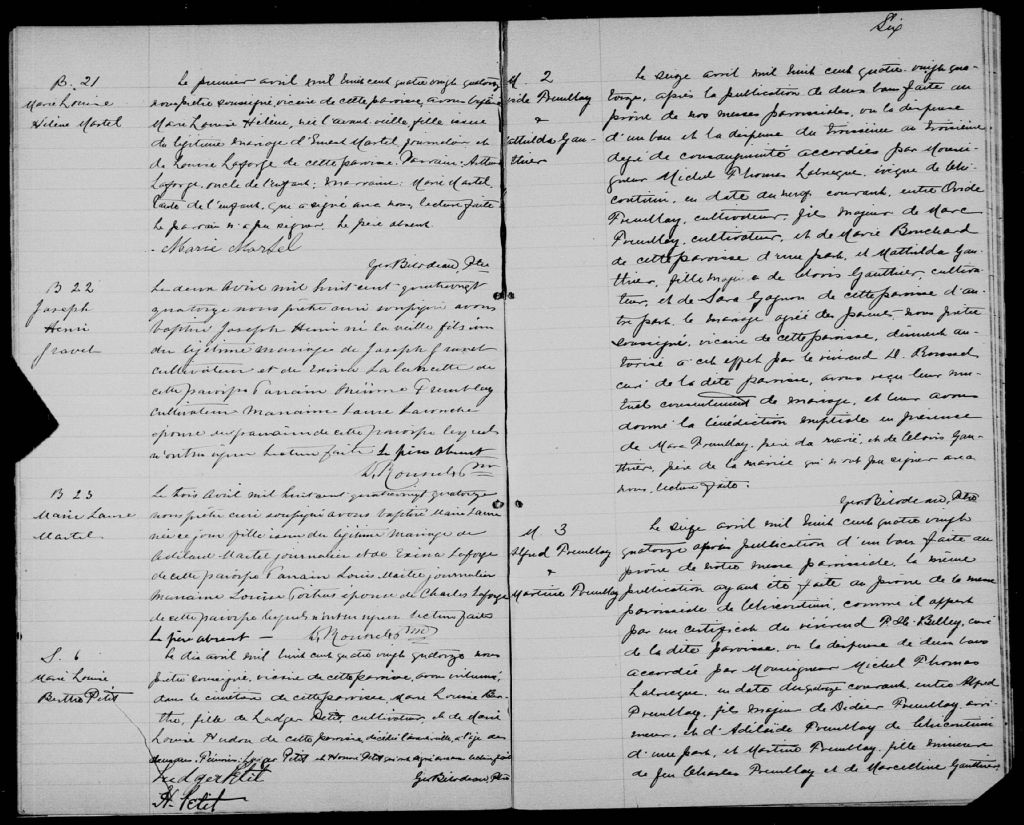 B. 21
Marie Louise
Hélène Martel
Le premier avril mil huit cent quatre vingt quatorze
nous prêtre soussigné vicaire de cette paroisse, avons baptisé
Marie Louise Hélène, née l'avant-veille, fille issue
du légitime mariage d'Ernest Martel, journalier et
de Louise Laforge de cette paroisse. Parrain:
Laforge, oncle de l'enfant; marraine: Marie Martel,
tante de l'enfant, qui a signé avec nous, lecture faite.
Le parrain n'a pu signer. Le père absent.
Marie Martel
Geo Bilodeau, Ptre
B 22
Joseph
Henri
Gravel
Le deux Avril mil huit cent quatrevingt
quatorze nous prêtre curé soussigné avons
baptisé Joseph Henri né la veille fils issu
du légitime mariage de Joseph Gravel
cultivateur et de
cette paroisse Parrain Tremblay
cultivateur Marraine Laure
épouse du parrain de cette paroisse lesquels
n'ont su signer lecture faite Le père absent
B 23
Marie Laure
Martel
Le trois Avril mil huit cent quatrevingt quatorze
nous prêtre curé soussigné avons baptisé Marie Laure
née ce jour fille issue du légitime mariage de
Martel journalier et de Exina Laforge
de cette paroisse Parrain Louis journalier
Marraine Louise épouse de Charles Laforge
de cette paroisse lesquels n'ont su signer lecture faite
Le père absent —
S. 6
Marie Louise
Berthe Petit
Le dix avril mil huit cent quatre vingt quatorze nous
prêtre soussigné, vicaire de cette paroisse, avons inhumé
dans le cimetière de cette paroisse, Marie Louise Ber-
the, fille de Ludger Petit, cultivateur, et de Marie
Louise Hudon de cette paroisse, décédée l'avant-veille, à l'âge de
Présents: Ludger Petit et Honoré Petit qui ont signé avec nous lecture faite
Ludger Petit
Geo Bilodeau, Ptre
H. Petit
Six
M. 2
Ovide Tremblay
&
Mathilda Gau-
thier
Le seize avril mil huit cent quatre-vingt qua-
torze, après la publication de deux bans faite au
prône de nos messes paroissiales, vu la dispense
d'un ban et la dispense du troisième au troisième
degré de consanguinité accordées par Monsei-
gneur Michel Thomas Labrecque, évêque de Chi-
coutimi, en date du neuf courant, entre Ovide
Tremblay, cultivateur, fils majeur de Marc
Tremblay, cultivateur, et de Marie Bouchard
de cette paroisse d'une part, et Mathilda Gau-
thier, fille majeure de Clovis Gauthier, cultiva-
teur, et de Sara Gagnon de cette paroisse d'au-
tre part, le mariage agréé des parents, nous prêtre
soussigné, vicaire de cette paroisse, dûment au-
torisé à cet effet par le révérend D. Roussel
curé de la dite paroisse, avons reçu leur mu-
tuel consentement de mariage, et leur avons
donné la bénédiction nuptiale en présence
de Marc Tremblay, père du marié, et de Clovis Gau-
thier, père de la mariée qui n'ont pu signer avec
nous, lecture faite.
Geo Bilodeau, Ptre
M 3
Alfred Tremblay
&
Martine Tremblay
Le seize avril mil huit cent quatre vingt
quatorze après publication d'un ban faite au
prône de notre messe paroissiale, la même
publication ayant été faite au prône de la messe
paroissiale de Chicoutimi, comme il appert
par un certificat du révérend F. X. Belley, curé
de la dite paroisse, vu la dispense de deux bans
accordée par Monseigneur Michel Thomas
Labrecque, en date du quatorze courant, entre Alfred
Tremblay, fils majeur de Didier Tremblay, arri-
meur, et d'Adélaïde Tremblay de Chicoutimi
d'une part, et Martine Tremblay, fille mineure
de feu Charles Tremblay et de Marcelline Gauthier,